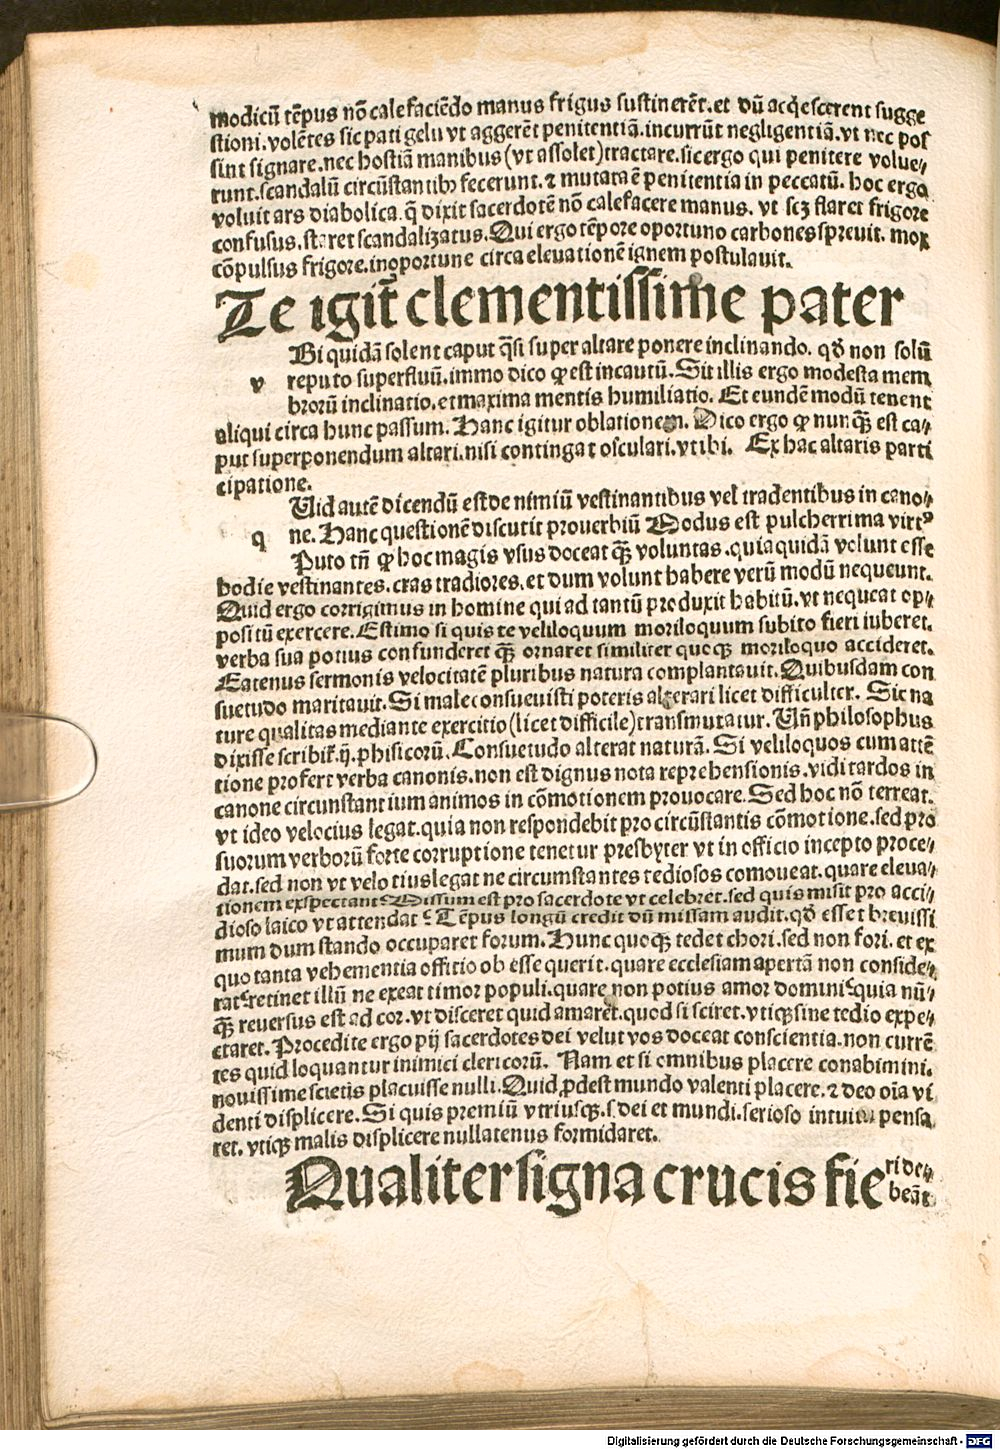 modicū tēpus nō calefaciēdo manus frigus sustinerēt.et dū acq̇escerent sugge
stioni.volētes sic pati gelu vt aggerēt penitentiā.incurrūt negligentiā.vt nec pos
sint signare.nec hostiā manibus (vt assolet) tractare.sic ergo qui penitere volue⸗
runt.scandalū circūstantibꝫ fecerunt.⁊ mutata ē penitentia in peccatū. hoc ergo
voluit ars diabolica.q̄ dixit sacerdotē nō calefacere manus. vt scꝫ staret frigore
confusus.staret scandalizatus.Qui ergo tēpore oportuno carbones spreuit. mox
cōpulsus frigore.inoportune circa eleuationē ignem postulauit.
Te igit̄ clementissime pater
Bi quidā solent caput q̄si super altare ponere inclinando. qđ non solū
v reputo superfluū.immo dico ꝙ est incautū.Sit illis ergo modesta mem
brorū inclinatio.et maxima mentis humiliatio. Et eundē modū tenent
aliqui circa hunc passum. Hanc igitur oblationem. Dico ergo ꝙ nunqꝫ est ca⸗
put superponendum altari.nisi contingat osculari.vt ibi. Ex hac altaris parti
cipatione.
Uid autē dicendū est de nimiū vestinantibus vel tradentibus in cano⸗
q ne. Hanc questionē discutit prouerbiū Modus est pulcherrima virtꝰ
Puto tn̄ ꝙ hoc magis vsus doceat qꝫ voluntas.quia quidā volunt esse
hodie vestinantes.cras tradiores.et dum volunt habere verū modū nequeunt.
Quid ergo corrigimus in homine qui ad tantū produxit habitū.vt nequeat op⸗
positū exercere.Estimo si quis te veliloquum moriloquum subito fieri iuberet.
verba sua potius confunderet qꝫ ornaret similiter quoqꝫ moriloquo accideret.
Eatenus sermonis velocitatē pluribus natura complantauit.Quibusdam con
suetudo maritauit.Si male consueuisti poteris alterari licet difficulter. Sic na
ture qualitas mediante exercitio (licet difficile) transmutatur. Un̄ philosophus
dixisse scribit᷒.ij.phisicorū. Consuetudo alterat naturā. Si veliloquos cum attē
tione profert verba canonis.non est dignus nota reprehensionis.vidi tardos in
canone circunstantium animos in cōmotionem prouocare.Sed hoc nō terreat.
vt ideo velocius legat.quia non respondebit pro circūstantis cōmotione.sed pro
suorum verborū forte corruptione tenetur presbyter vt in officio incepto proce⸗
dat.sed non vt velotius legat ne circumstantes tediosos comoueat.quare eleua⸗
tionem exspectant? Missum est pro sacerdote vt celebret.sed quis misit pro acci⸗
dioso laico vt attendat? Tēpus longū credit dū missam audit.qđ esset breuissi
mum dum stando occuparet forum. Hunc quoqꝫ tedet chori.sed non fori. et ex
quo tanta vehementia offitio obesse querit.quare ecclesiam apertā non conside⸗
rat?retinet illū ne exeat timor populi.quare non potius amor domini?quia nū⸗
qꝫ reuersus est ad cor.vt disceret quid amaret.quod si sciret.vtiqꝫ sine tedio expe⸗
ctaret. Procedite ergo pij sacerdotes dei velut vos doceat conscientia.non currē
tes quid loquantur inimici clericorū. Nam et si omnibus placere conabimini.
nouissime scietis placuisse nulli.Quid ꝓdest mundo valenti placere.⁊ deo oīa vi
denti displicere. Si quis premiū vtriusqꝫ.s.dei et mundi.serioso intuitu pensa
ret. vtiqꝫ malis displicere nullatenus formidaret.
Qualiter signa crucis fie ri de⸗
beāt
Digitalisierung gefördert durch die Deutsche Forschungsgemeinschaft - DFG